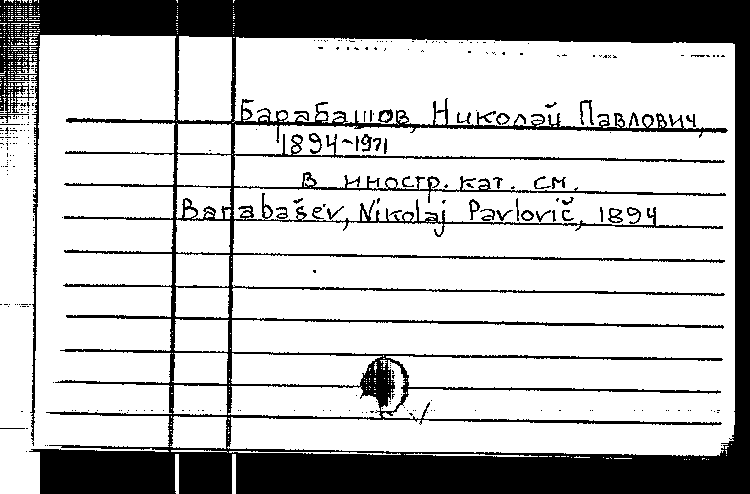 Барабашов, Николай Павлович,
1894-1971
в иностр. кат. см.
Barabašev, Nikolaj Pavlovič, 1894